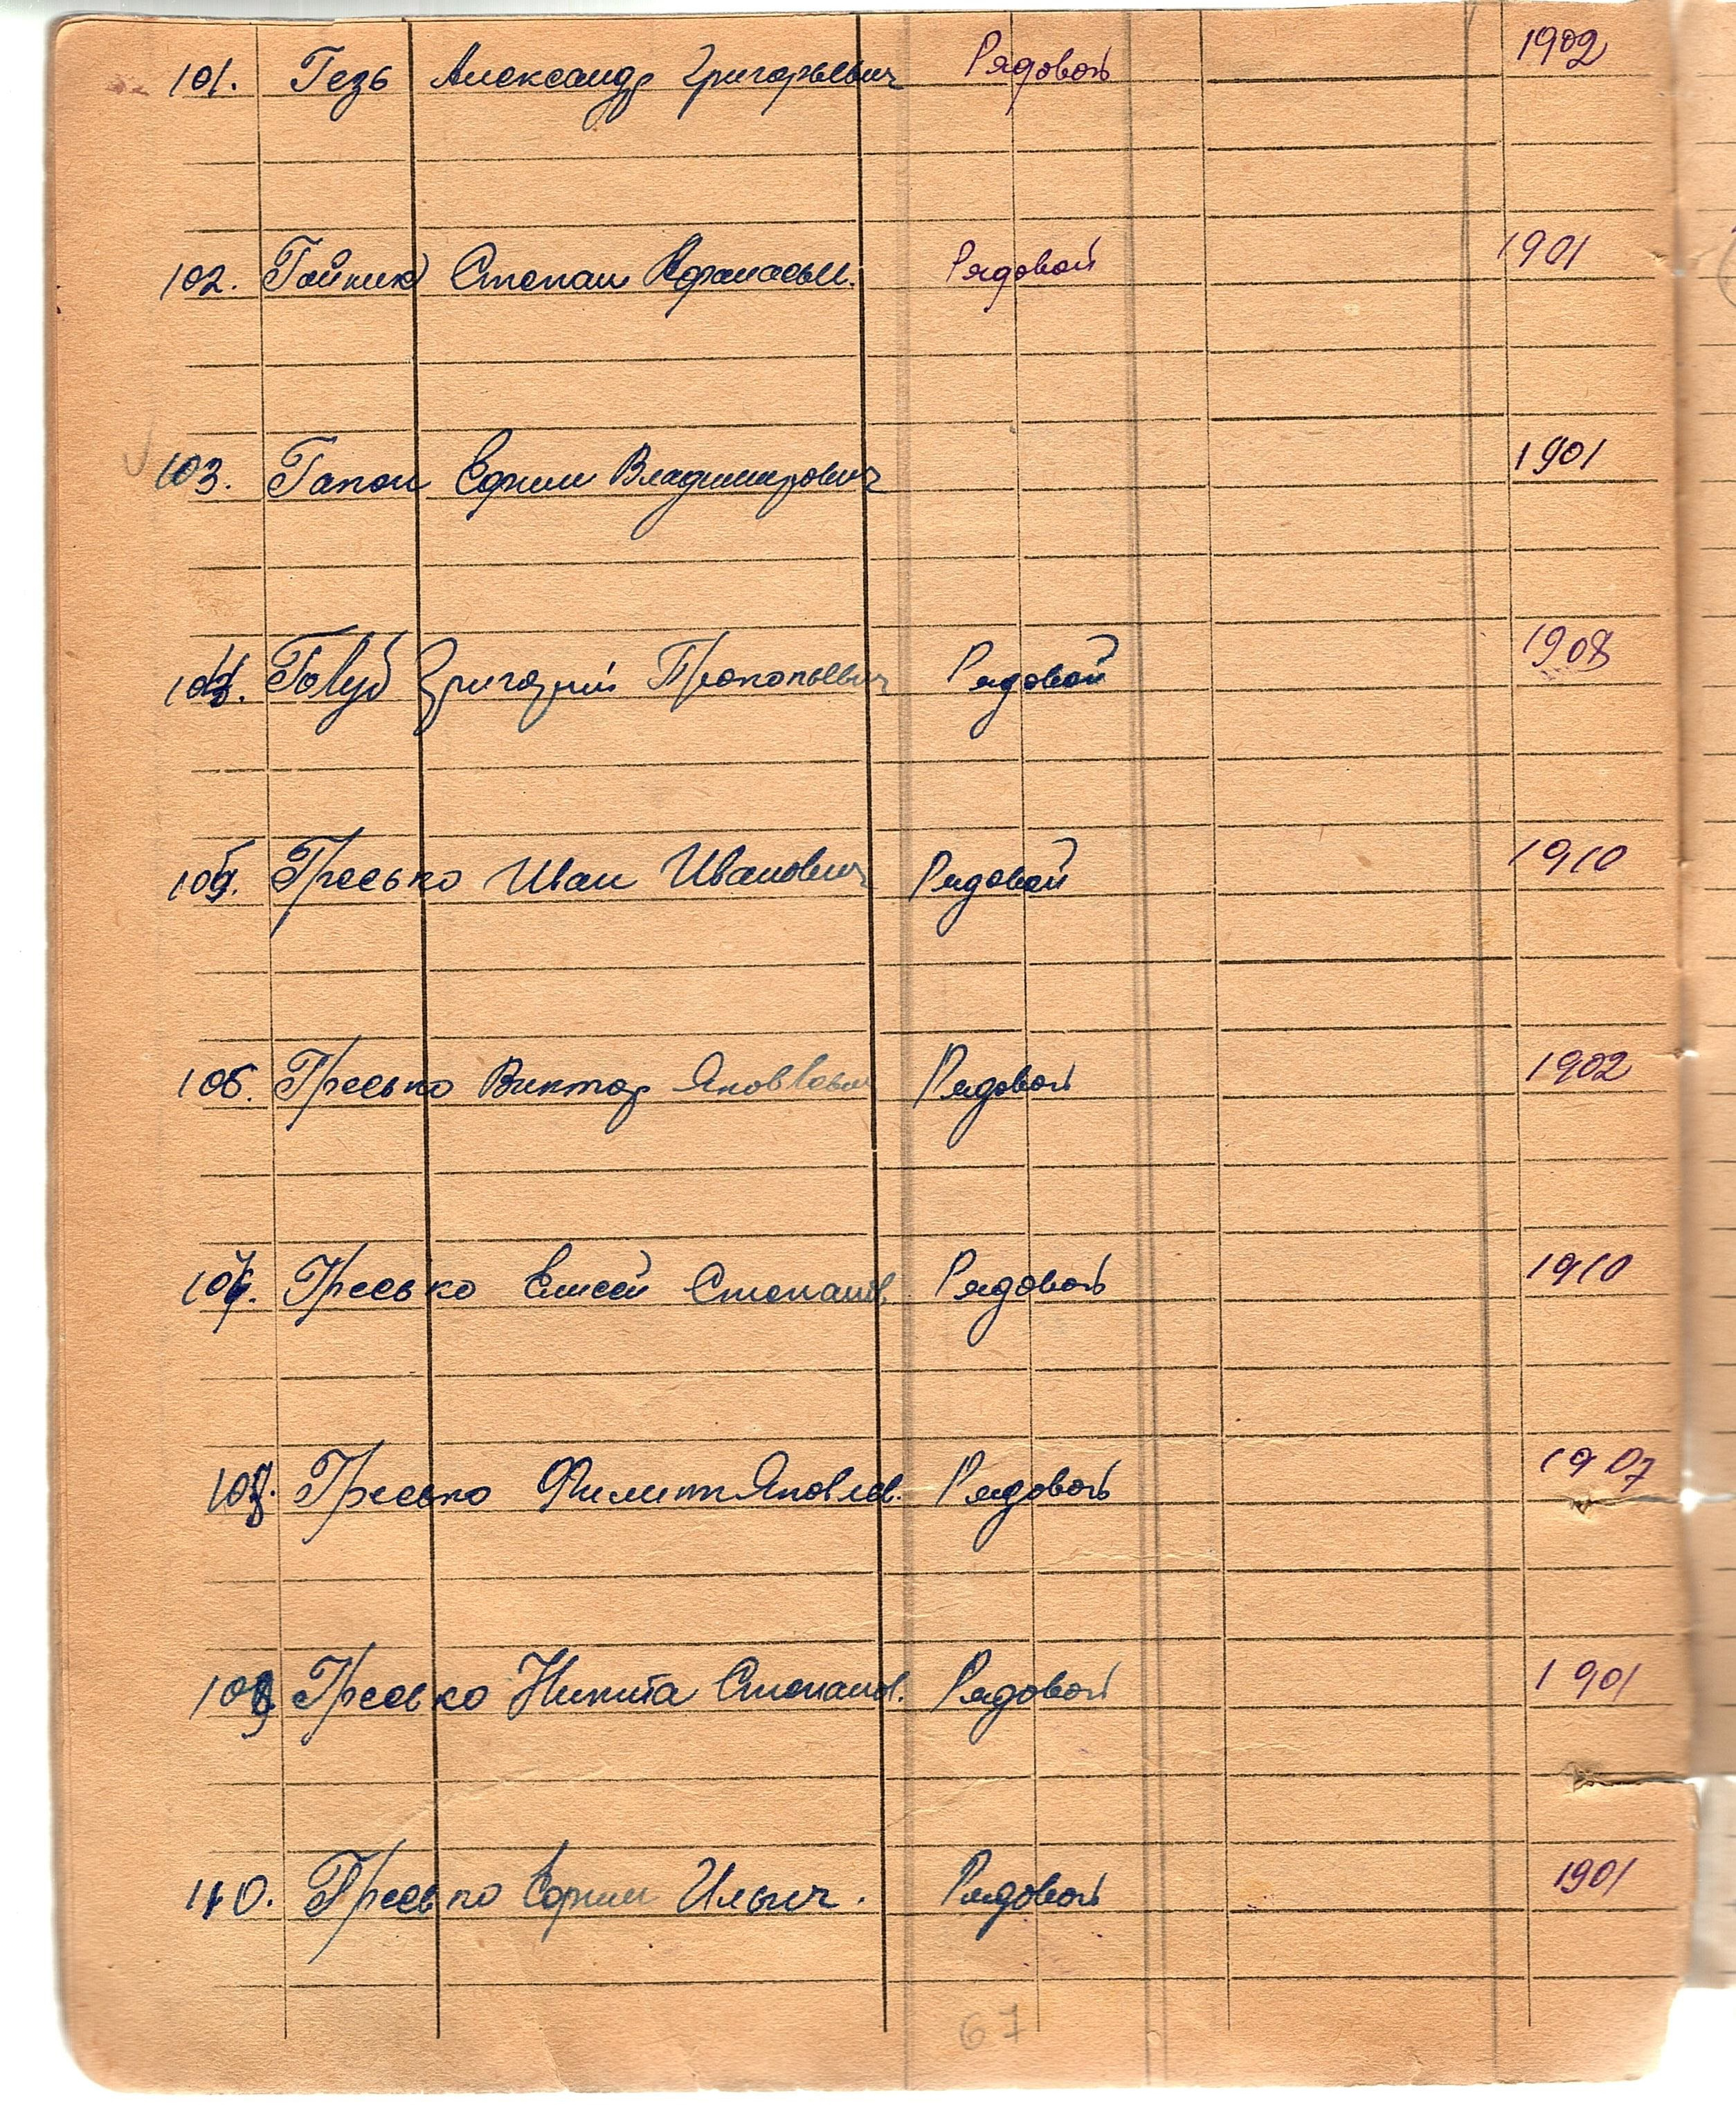 101. Гезь Александр Григорьевич Рядовой 1902
102. Гайник Степан Афанасьи. Рядовой 1901
103. Гапон Ефим Владимирович 1901
104. Голуб Григорий Прокопьевич Рядовой 1908
105. Гресько Иван Иванович Рядовой 1910
106. Гресько Виктор Яковлевич Рядовой 1902
107. Гресько Елисей Степанов. Рядовой 1910
108. Гресько Филипп Яковлев. Рядовой 1907
109 Гресько Никита Степанов. Рядовой 1901
110. Гресько Ефим Ильич. Рядовой 1901
67